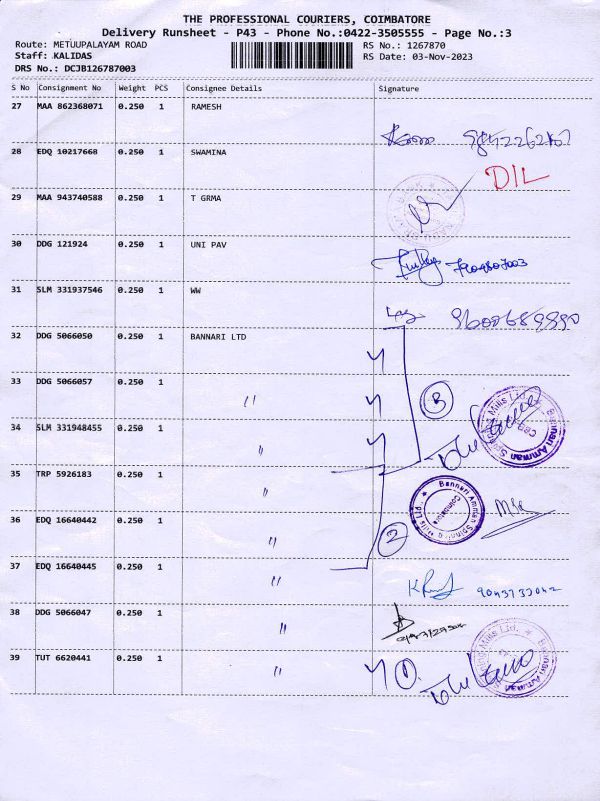 THE PROFESSIONAL COURIERS, COIMBATORE
Delivery Runsheet - P43 - Phone No.:0422-3505555 - Page No.:3
Route: METUUPALAYAM ROAD RS No.: 1267870
Staff: KALIDAS RS Date: 03-Nov-2023
DRS No.: DCJB126787003
S No Consignment No Weight PCS Consignee Details Signature
27 MAA 862368071 0.250 1 RAMESH
28 EDQ 10217668 0.250 1 SWAMINA
D/L
29 MAA 943740588 0.250 1 T GRMA
30 DDG 121924 0.250 1 UNI PAV
31 SLM 331937546 0.250 1 WW
32 DDG 5066050 0.250 1 BANNARI LTD
33 DDG 5066057 0.250 1 "
3
34 SLM 331948455 0.250 1 "
Bannari Amman Spinning Mills Ltd.
35 TRP 5926183 0.250 1 "
Bannari Amman Spinning Mills Ltd.
36 EDQ 16640442 0.250 1 "
2
37 EDQ 16640445 0.250 1 "
38 DDG 5066047 0.250 1 "
39 TUT 6620441 0.250 1 "
Bannari Amman Spinning Mills Ltd.